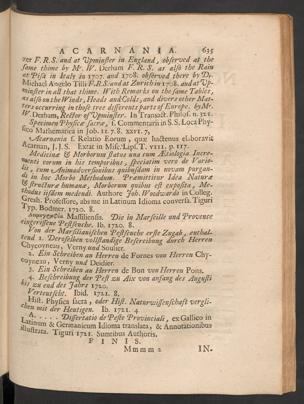 ACARNANIA. 635
ver F.R.S. and at Upminster in England, observed at the
same thime by Mr. W. Derham F.R.S. ar also the Rain
at Pisa in Italy in 1707. and 1708. observed there by D.
Michael Angelo Tilli F.R.S and at Zurich in 1708. and at Up-
minster in all that thime. With Remarks on the same Tables,
as also on the Winds, Heads and Colds, and divers other Mat-
ters occurring in those tree differents parts of Europe. by Mr.
W. Derham, Rector of Upminster. In Transact. Philos. n. 321.
Specimen Physicæ sacræ, s. Commentarii in S.S. Loca Phy-
sico Mathematica in Job. II. 7.8. XXII. 7,
Acarnania s. Relatio Eorum, quæ hactenus elaboravit
Acarnan, J.J.S. Extat in Misc. Lips. T. VIII. p. 117.
Medicinæ & Morborum status una cum Ætiologia Incre-
menti eorum in his temporibus, speciatim vero de Vario-
lis, cum Animadversionibus quibusdam in novam purgan-
di in hoc Morbo Methodum. Præmittitur Idea Naturæ
& structuræ humanæ, Morborum quibus est exposita, Me-
thodus iisdem medendi. Authore Joh. Woodwardo in Colleg.
Gresh. Professore, abs me in Latinum Idioma conversa. Tiguri
Typ. Bodmer. 1720. 8.
Massiliensis. Die in Marseille und Provence
eingerissene Pestsuche. Ib. 1720. 8.
Von der Marsilianischen Pestsuche erste Zugab, enthal-
tend 1. Deroselben vollständige Beschreibung durch Herren
Chycoyneau, Verny und Soulier.
2. Ein Schreiben an Herren de Fornes von Herren Chy-
coyneau, Verny und Deidier.
3. Ein Schreiben an Herren de Bon von Herren Pons.
4. Beschreibung der Pest zu Aix von anfang des Augusti
bis zu end des Jahrs 1720.
Verteutscht. Ibid. 1721. 8.
Hist. Physica sacra, oder Hist. Naturwissenschaft vergli-
chen mit der Heutigen. Ib. 1721. 4
A..... Dissertatio de Peste Provinciali, ex Gallico in
Latinum & Germanicum Idioma translata, & Annotationibus
illustrata. Tiguri 1721. Sumtibus Authoris.
FINIS.
Mmmm 2 IN.